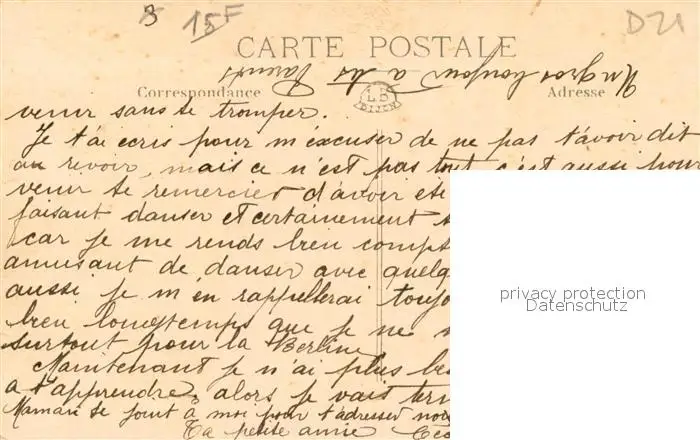 3 15F D21
CARTE POSTALE
Un gros bonjour à tes Parents
Correspondance Adresse
LB
DIJON
venir sans se tromper.
Je t'ai ecris pour m'éxcuser de ne pas t'avoir dit
au revoir, mais ce n'est pas tout c'est aussi pour
venir te remercier d'avoir été
faisant danser et certainement
car je me rends bien compt
amusant de danser avec quelq
aussi je m'en rappellerai toujo
bien longtemps que je ne
surtout pour la Berline
Maintenant je n'ai plus
a t'apprendre, alors je vais ter
Maman se joint à moi pour t'adresser nos
Ta petite amie
privacy protection
Datenschutz